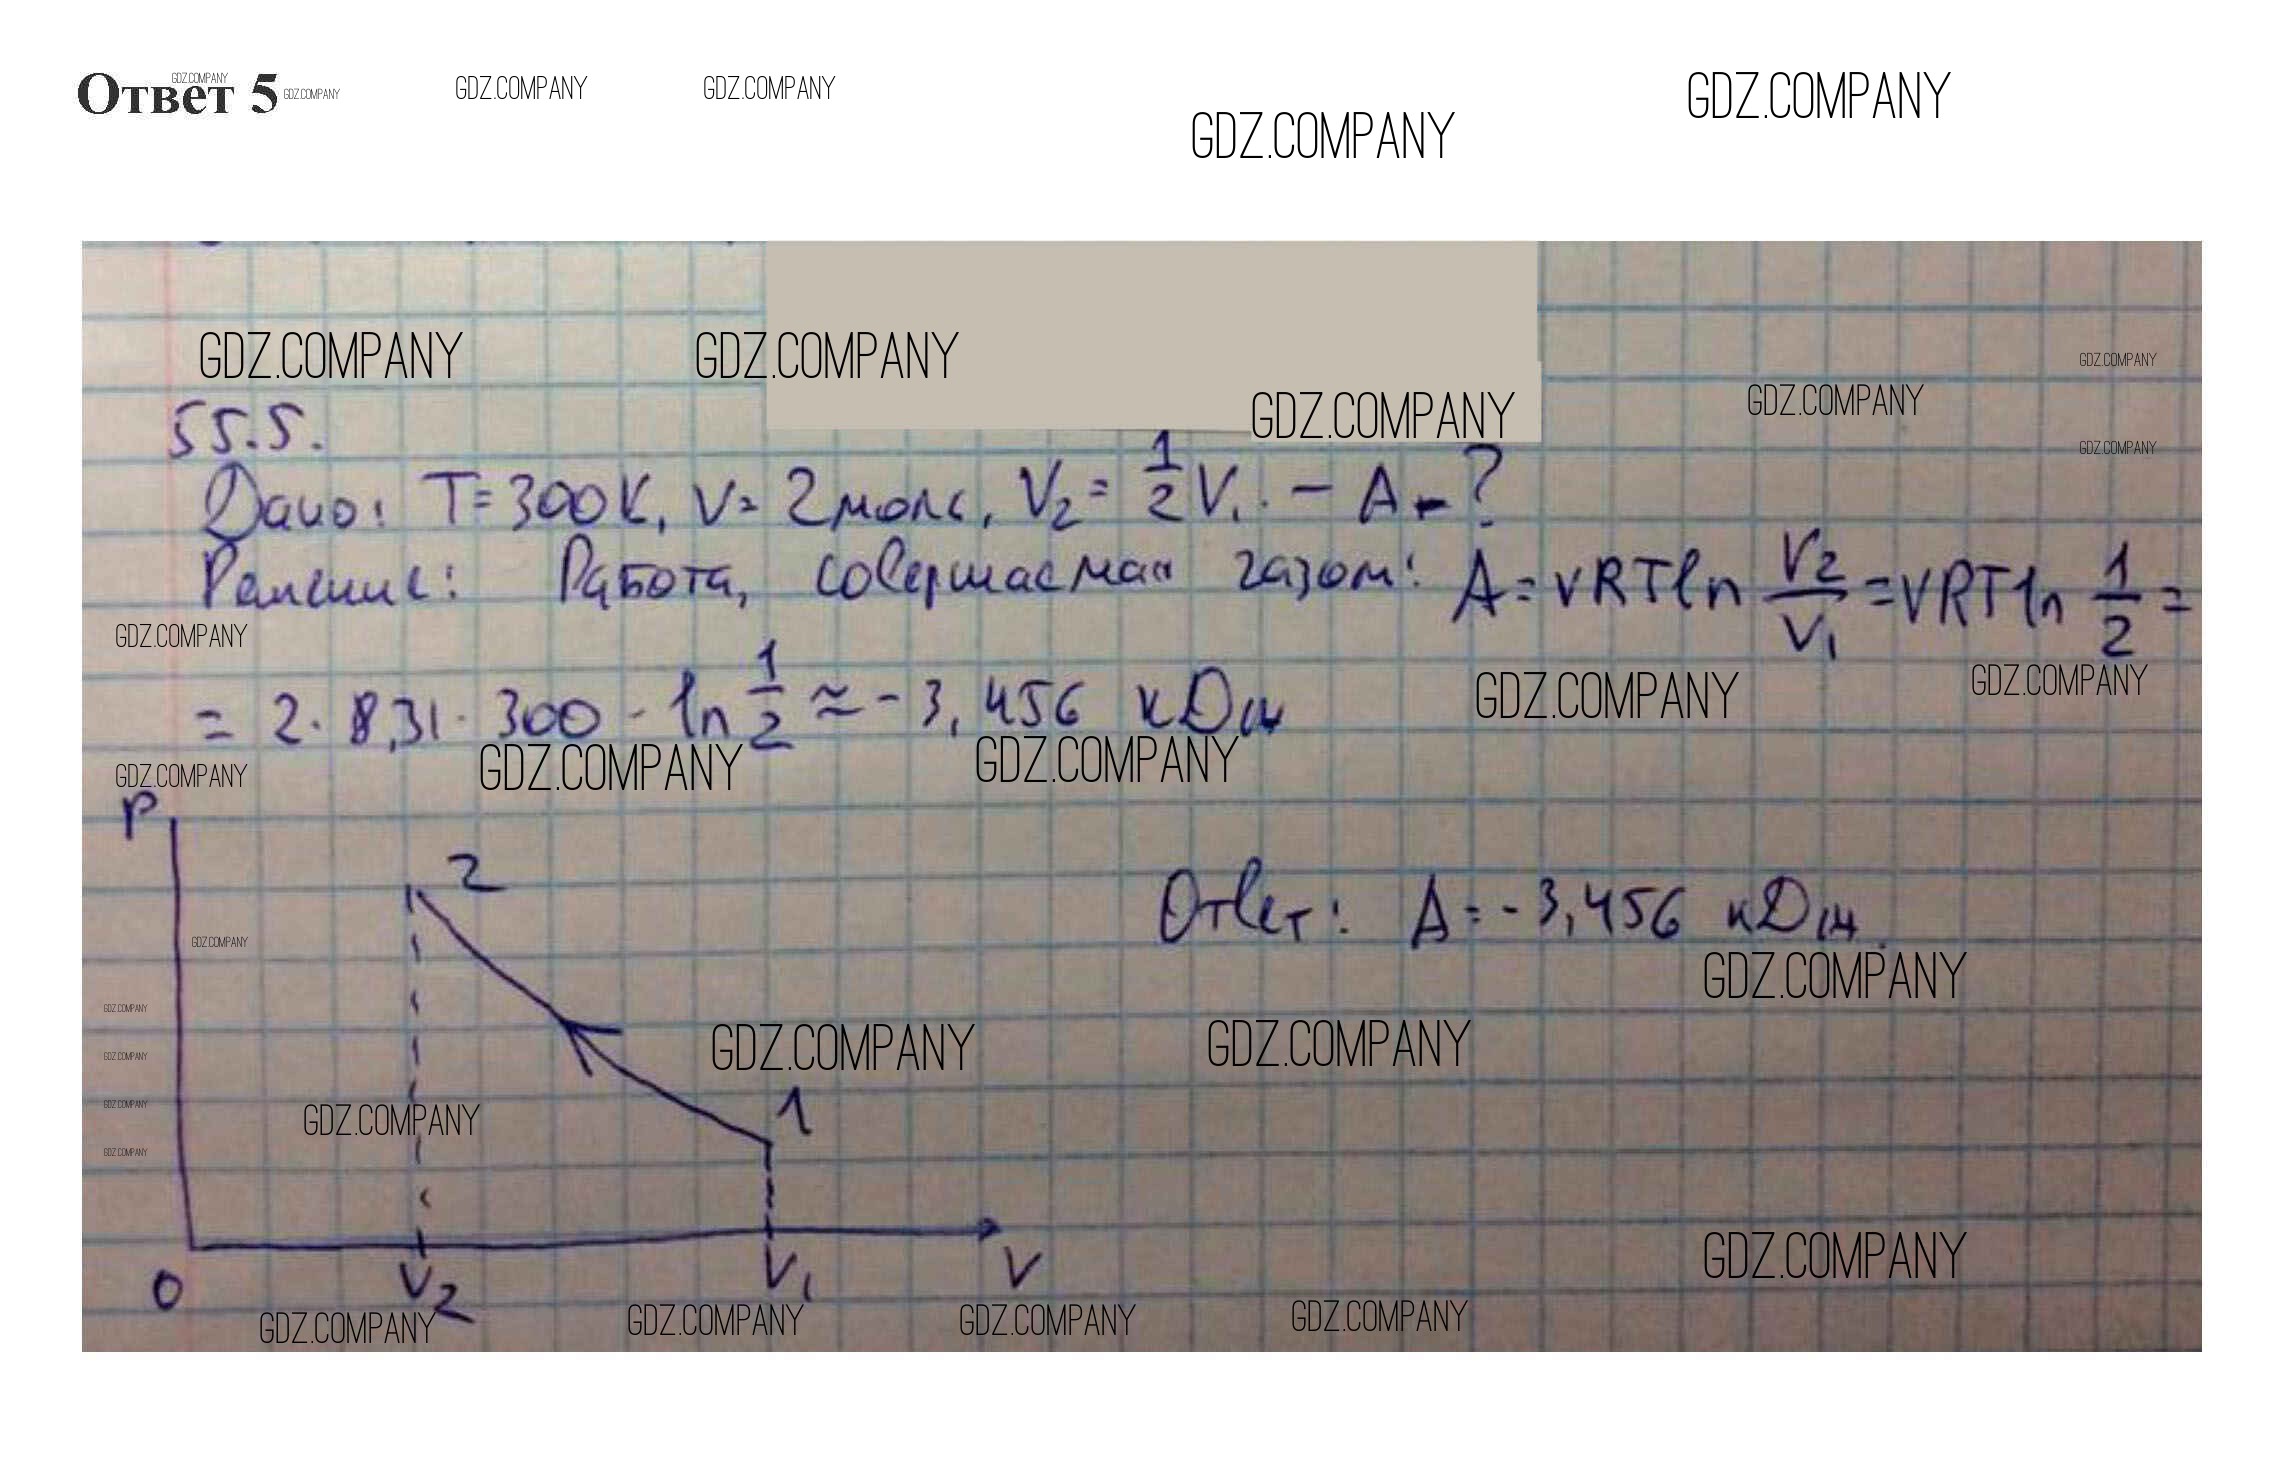 Ответ 5 GDZ.COMPANY GDZ.COMPANY GDZ.COMPANY GDZ.COMPANY
GDZ.COMPANY GDZ.COMPANY
GDZ.COMPANY GDZ.COMPANY GDZ.COMPANY
GDZ.COMPANY GDZ.COMPANY
55.5. GDZ.COMPANY
Дано: T=300К, ν= 2моль, V₂= 1/2 V₁. – A – ?
Решение: Работа, совершаемая газом: A=νRTln V₂/V₁ =νRTln 1/2 =
GDZ.COMPANY GDZ.COMPANY GDZ.COMPANY
= 2·8,31·300·ln 1/2 ≈ -3,456 кДж
GDZ.COMPANY GDZ.COMPANY GDZ.COMPANY
P
2
Ответ: A=-3,456 кДж.
GDZ.COMPANY GDZ.COMPANY
GDZ.COMPANY
GDZ.COMPANY GDZ.COMPANY GDZ.COMPANY
GDZ.COMPANY GDZ.COMPANY
1
GDZ.COMPANY
GDZ.COMPANY
0 V₂ V₁ V
GDZ.COMPANY GDZ.COMPANY GDZ.COMPANY GDZ.COMPANY